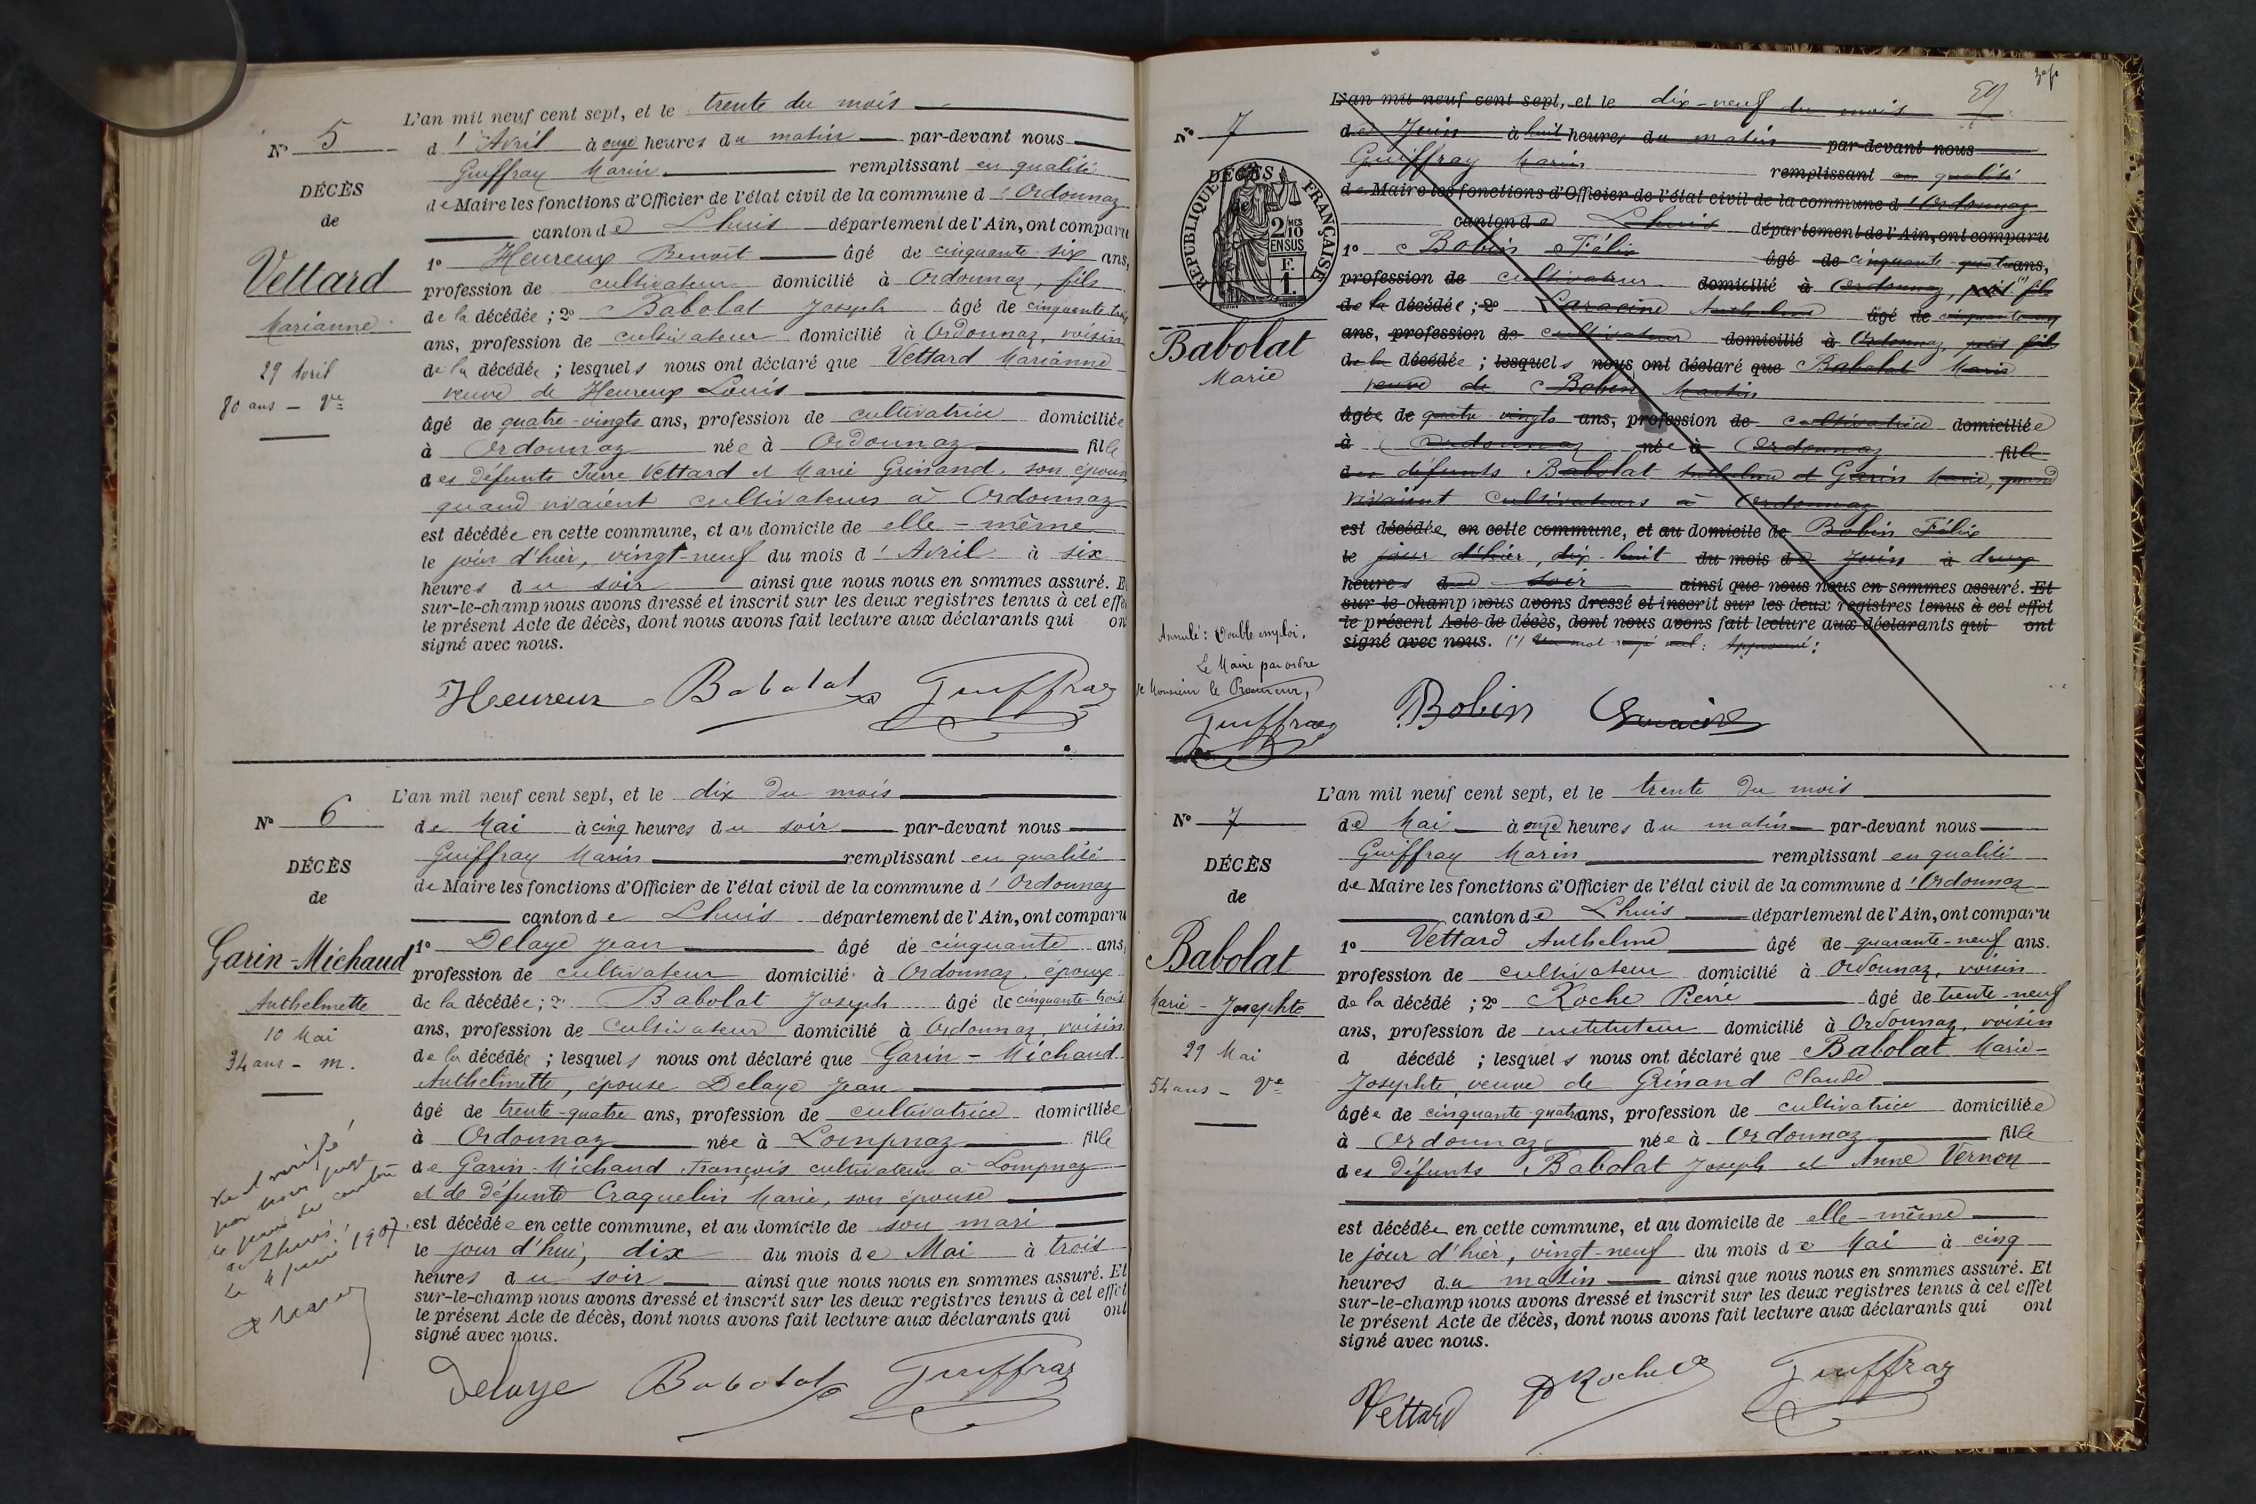 L'an mil neuf cent sept, et le trente du mois
N° 5
d'Avril à onze heures du matin par-devant nous
Guiffray Marin remplissant en qualité
DÉCÈS
de Maire les fonctions d'Officier de l'état civil de la commune d'Ordonnaz
de
canton de Lhuis département de l'Ain, ont comparu
1° Heureux Benoît âgé de cinquante-six ans,
Vettard
profession de cultivateur domicilié à Ordonnaz, fils
Marianne
de la décédée ; 2° Babolat Joseph âgé de cinquante trois
ans, profession de cultivateur domicilié à Ordonnaz, voisin
29 Avril
de la décédée ; lesquels nous ont déclaré que Vettard Marianne
80 ans - Vve
veuve de Heureux Louis
âgé de quatre-vingts ans, profession de cultivatrice domiciliée
à Ordonnaz née à Ordonnaz fille
des défunts Pierre Vettard et Marie Grinand, son épouse
quand vivaient cultivateurs à Ordonnaz
est décédée en cette commune, et au domicile de elle-même
le jour d'hier, vingt-neuf du mois d'Avril à six
heures du soir ainsi que nous nous en sommes assuré. Et
sur-le-champ nous avons dressé et inscrit sur les deux registres tenus à cet effet
le présent Acte de décès, dont nous avons fait lecture aux déclarants qui ont
signé avec nous.
Heureux Babolat Guiffray
L'an mil neuf cent sept, et le dix du mois
N° 6
de Mai à cinq heures du soir par-devant nous
Guiffray Marin remplissant en qualité
DÉCÈS
de Maire les fonctions d'Officier de l'état civil de la commune d'Ordonnaz
de
canton de Lhuis département de l'Ain, ont comparu
Garin-Michaud
1° Delaye Jean âgé de cinquante ans,
profession de cultivateur domicilié à Ordonnaz, époux
Anthelmette
de la décédée ; 2° Babolat Joseph âgé de cinquante-trois
10 Mai
ans, profession de cultivateur domicilié à Ordonnaz, voisin
34 ans - m.
de la décédée ; lesquels nous ont déclaré que Garin-Michaud
Anthelmette, épouse Delaye Jean
âgé de trente-quatre ans, profession de cultivatrice domiciliée
à Ordonnaz née à Lompnaz fille
de Garin-Michaud François cultivateur à Lompnaz
et de défunte Craquelin Marie, son épouse
est décédée en cette commune, et au domicile de son mari
le jour d'hui, dix du mois de Mai à trois
heures du soir ainsi que nous nous en sommes assuré. Et
sur-le-champ nous avons dressé et inscrit sur les deux registres tenus à cet effet
le présent Acte de décès, dont nous avons fait lecture aux déclarants qui ont
signé avec nous.
Vu et vérifié
par nous juge
de paix du canton
de Lhuis
Le 4 juin 1907.
Delaye Babolat Guiffray
L'an mil neuf cent sept, et le dix-neuf du mois
N° 7
de Juin à huit heures du matin par-devant nous
Guiffray Marin remplissant en qualité
DÉCÈS
RÉPUBLIQUE FRANÇAISE
2/10 EN SUS
F. 1.
de Maire les fonctions d'Officier de l'état civil de la commune d'Ordonnaz
canton de Lhuis département de l'Ain, ont comparu
1° Bobin Félix âgé de cinquante-quatre ans,
profession de cultivateur domicilié à Ordonnaz, fils
de la décédée ; 2° Saracine Anthelme âgé de
ans, profession de cultivateur domicilié à Ordonnaz, fils
Babolat
Marie
de la décédée ; lesquels nous ont déclaré que Babolat Marie
veuve de Bobin Martin
âgée de quatre-vingts ans, profession de cultivatrice domiciliée
à Ordonnaz née à Ordonnaz fille
des défunts Babolat Anthelme et Garin Marie, quand
vivaient cultivateurs à Ordonnaz
est décédée en cette commune, et au domicile de Bobin Félix
le jour d'hier, dix-huit du mois de Juin à deux
heures du soir ainsi que nous nous en sommes assuré. Et
sur-le-champ nous avons dressé et inscrit sur les deux registres tenus à cet effet
le présent Acte de décès, dont nous avons fait lecture aux déclarants qui ont
signé avec nous. (1) Un mot rayé nul : Approuvé :
Annulé : Double emploi.
Le Maire par ordre
de Monsieur le Procureur,
Guiffray
Bobin
L'an mil neuf cent sept, et le trente du mois
N° 7
de Mai à onze heures du matin par-devant nous
Guiffray Marin remplissant en qualité
DÉCÈS
de Maire les fonctions d'Officier de l'état civil de la commune d'Ordonnaz
de
canton de Lhuis département de l'Ain, ont comparu
Babolat
1° Vettard Anthelme âgé de quarante-neuf ans.
profession de cultivateur domicilié à Ordonnaz, voisin
Marie-Josephte
de la décédé ; 2° Roche Pierre âgé de trente-neuf
ans, profession de instituteur domicilié à Ordonnaz, voisin
29 Mai
d décédé ; lesquels nous ont déclaré que Babolat Marie-
54 ans - Vve
Josephte, veuve de Grinand Claude
âgée de cinquante-quatre ans, profession de cultivatrice domiciliée
à Ordonnaz née à Ordonnaz fille
des défunts Babolat Joseph et Anne Vernon
est décédée en cette commune, et au domicile de elle-même
le jour d'hier, vingt-neuf du mois de Mai à cinq
heures du matin ainsi que nous nous en sommes assuré. Et
sur-le-champ nous avons dressé et inscrit sur les deux registres tenus à cet effet
le présent Acte de décès, dont nous avons fait lecture aux déclarants qui ont
signé avec nous.
Vettard P Roche Guiffray